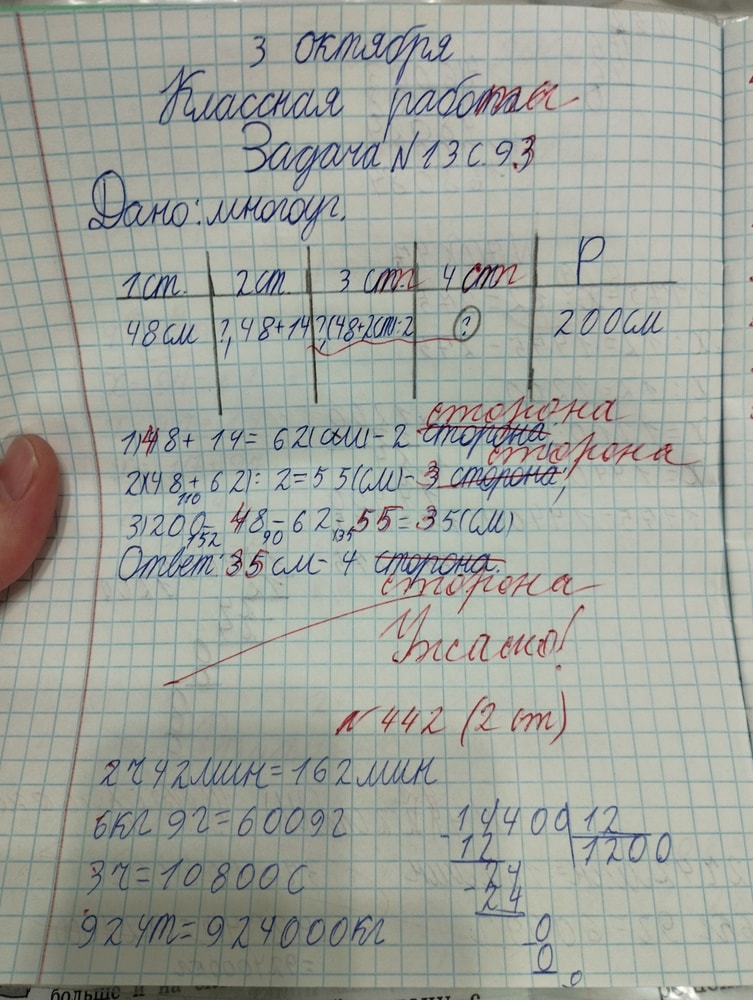 3 октября
Классная работа
Задача N13 с.93
Дано: многоуг.
1ст. 2ст. 3 ст. 4 ст P
48см ?,48+14 ?,(48+2ст):2 ? 200см
сторона
1)48+14=62(см)-2 сторона.
сторона
2)(48+62):2=55(см)-3 сторона;
110
3)200-48-62-55=35(см)
152 90 135
Ответ:35см-4 сторона.
сторона
Ужасно!
N442 (2 ст)
2ч42мин=162мин
6кг 9г=6009г
3ч=10800с
924т=924000кг
14400 12
12 1200
24
24
0
0
больше и на